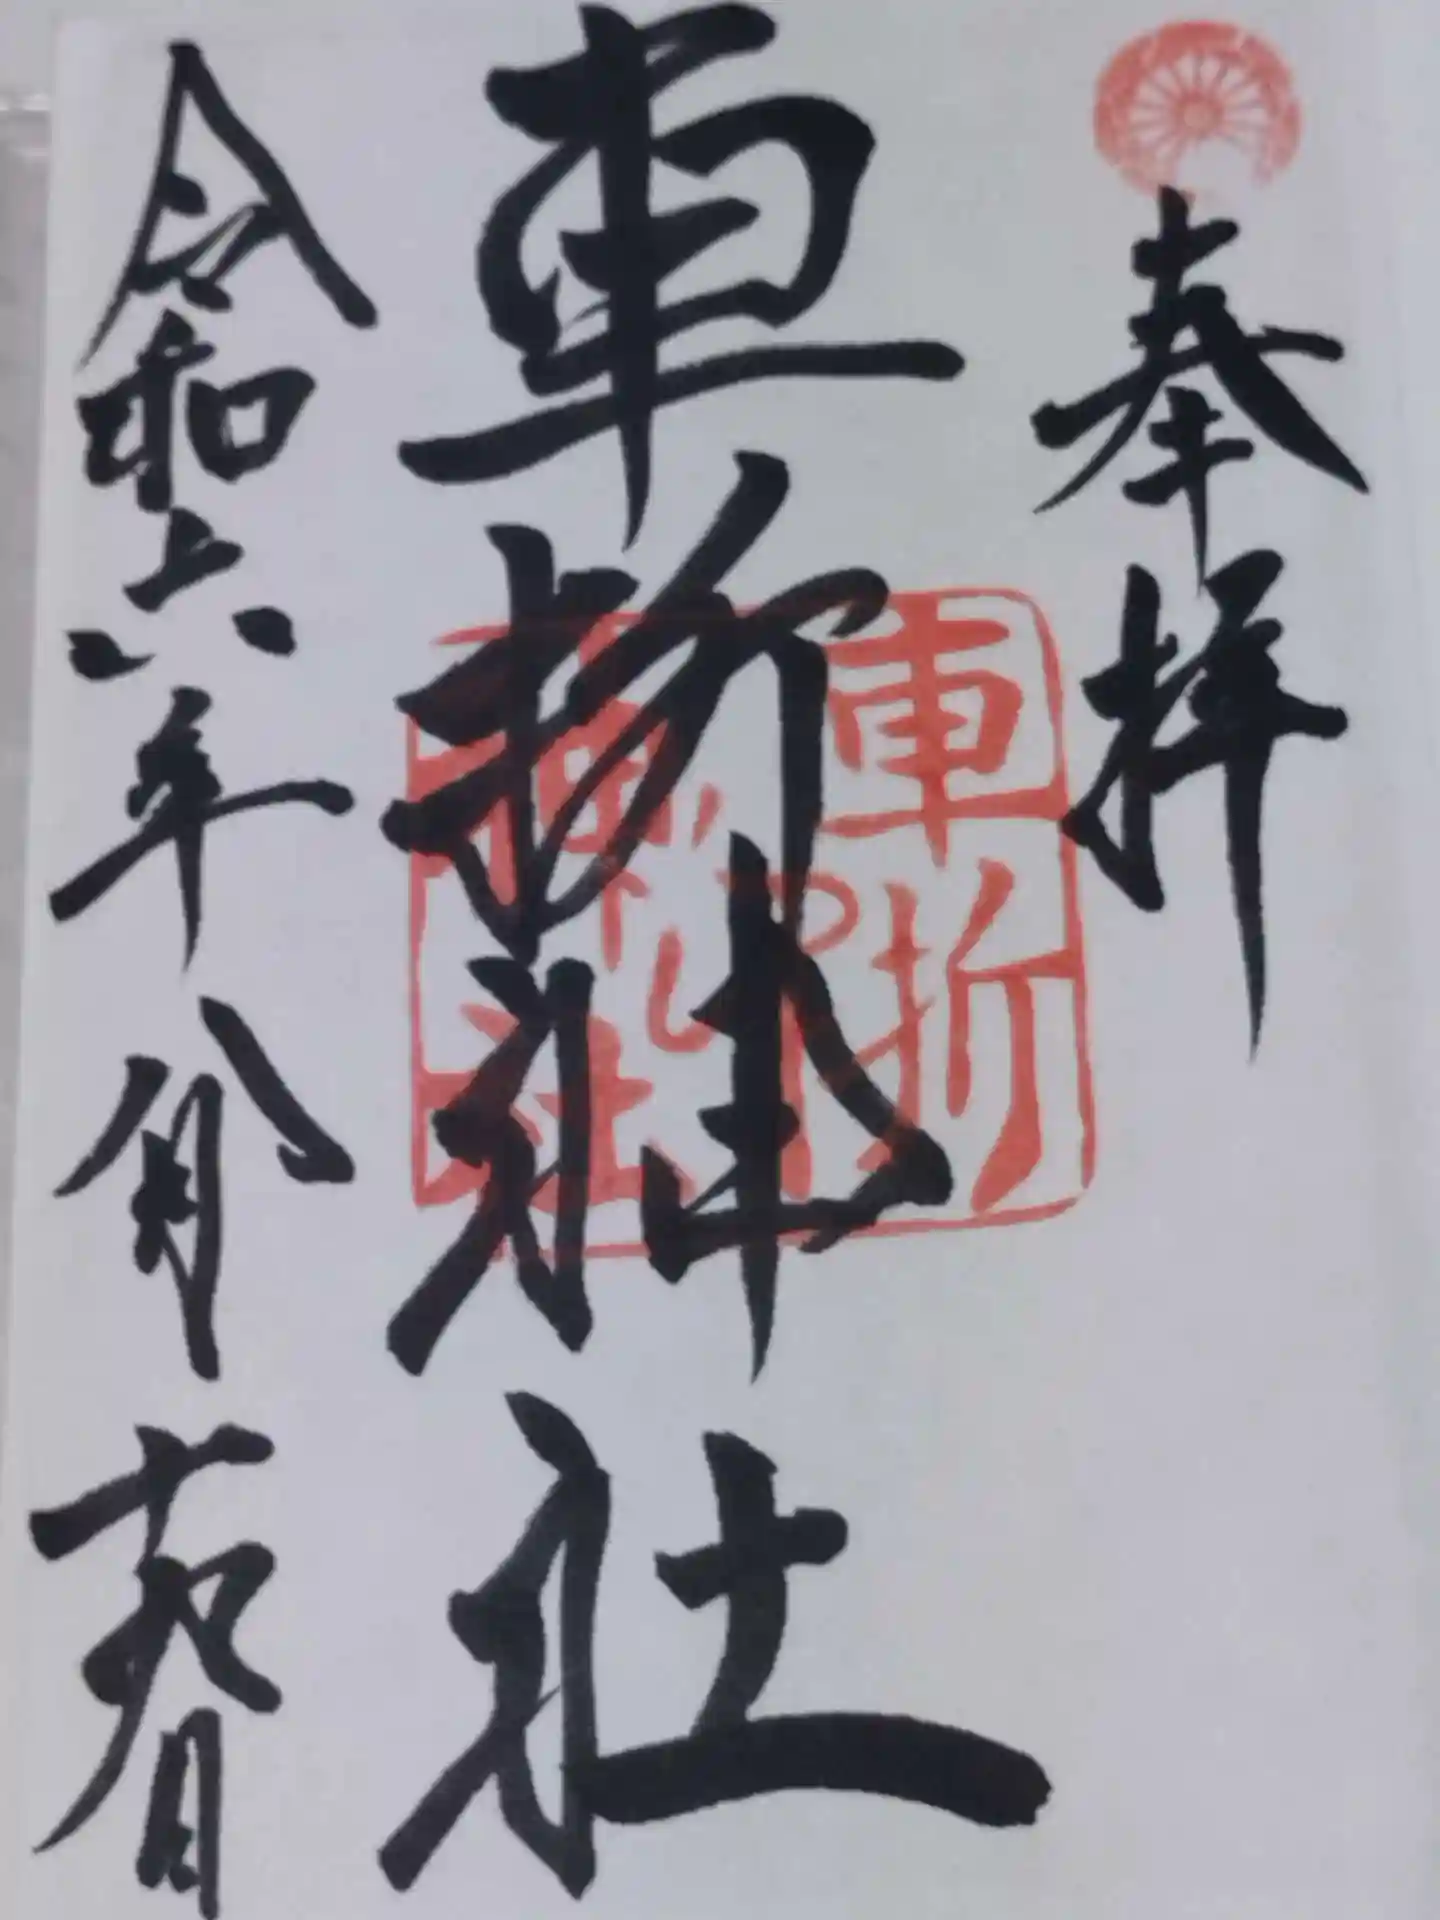 奉拝
車折神社
車折
神社
令和六年八月日